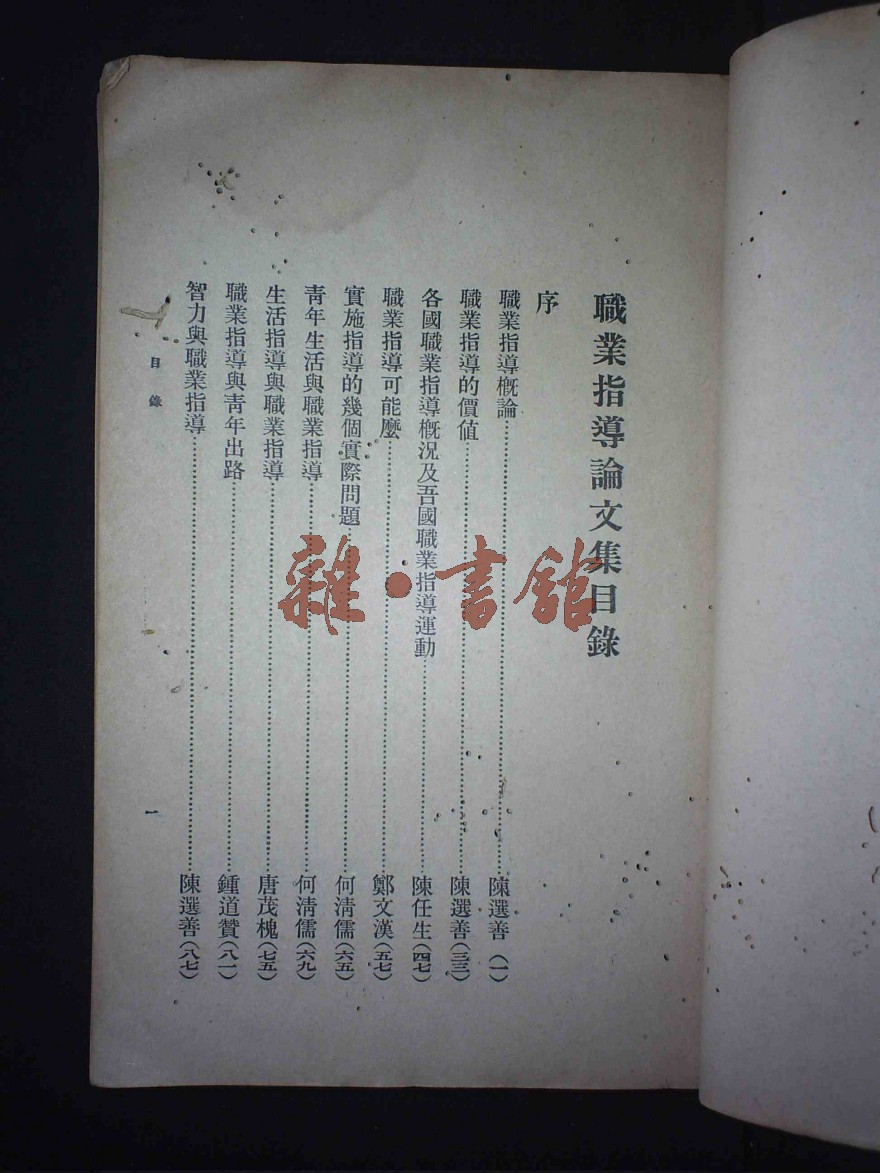 職業指導論文集目錄
序
職業指導槪論……陳選善(一)
職業指導的價值……陳選善(三三)
各國職業指導槪況及吾國職業指導運動……陳任生(四七)
職業指導可能麼……鄭文漢(五七)
實施指導的幾個實際問題……何淸儒(六五)
靑年生活與職業指導……何淸儒(六九)
生活指導與職業指導……唐茂槐(七五)
職業指導與靑年出路……鍾道贊(八一)
智力與職業指導……陳選善(八七)
目錄
一
雜·書館